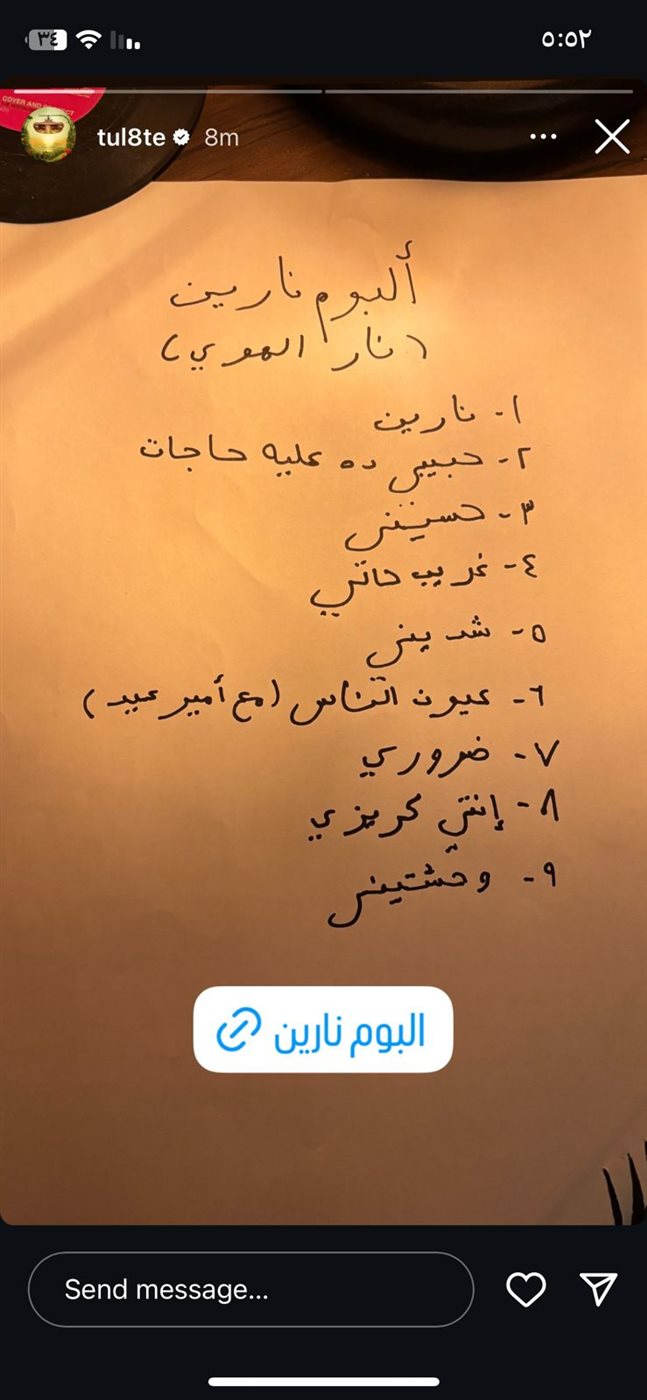 ٣٤
٥:٥٢
COVER AND
tul8te 8m
ألبوم نارين
(نار الهوي)
١- نارين
٢- حبيبي ده عليه حاجات
٣- حسيني
٤- غريب حالي
٥- شديني
٦- عيون الناس (مع أمير عيد)
٧- ضروري
٨- إنتي كريزي
٩- وحشتيني
البوم نارين
Send message...